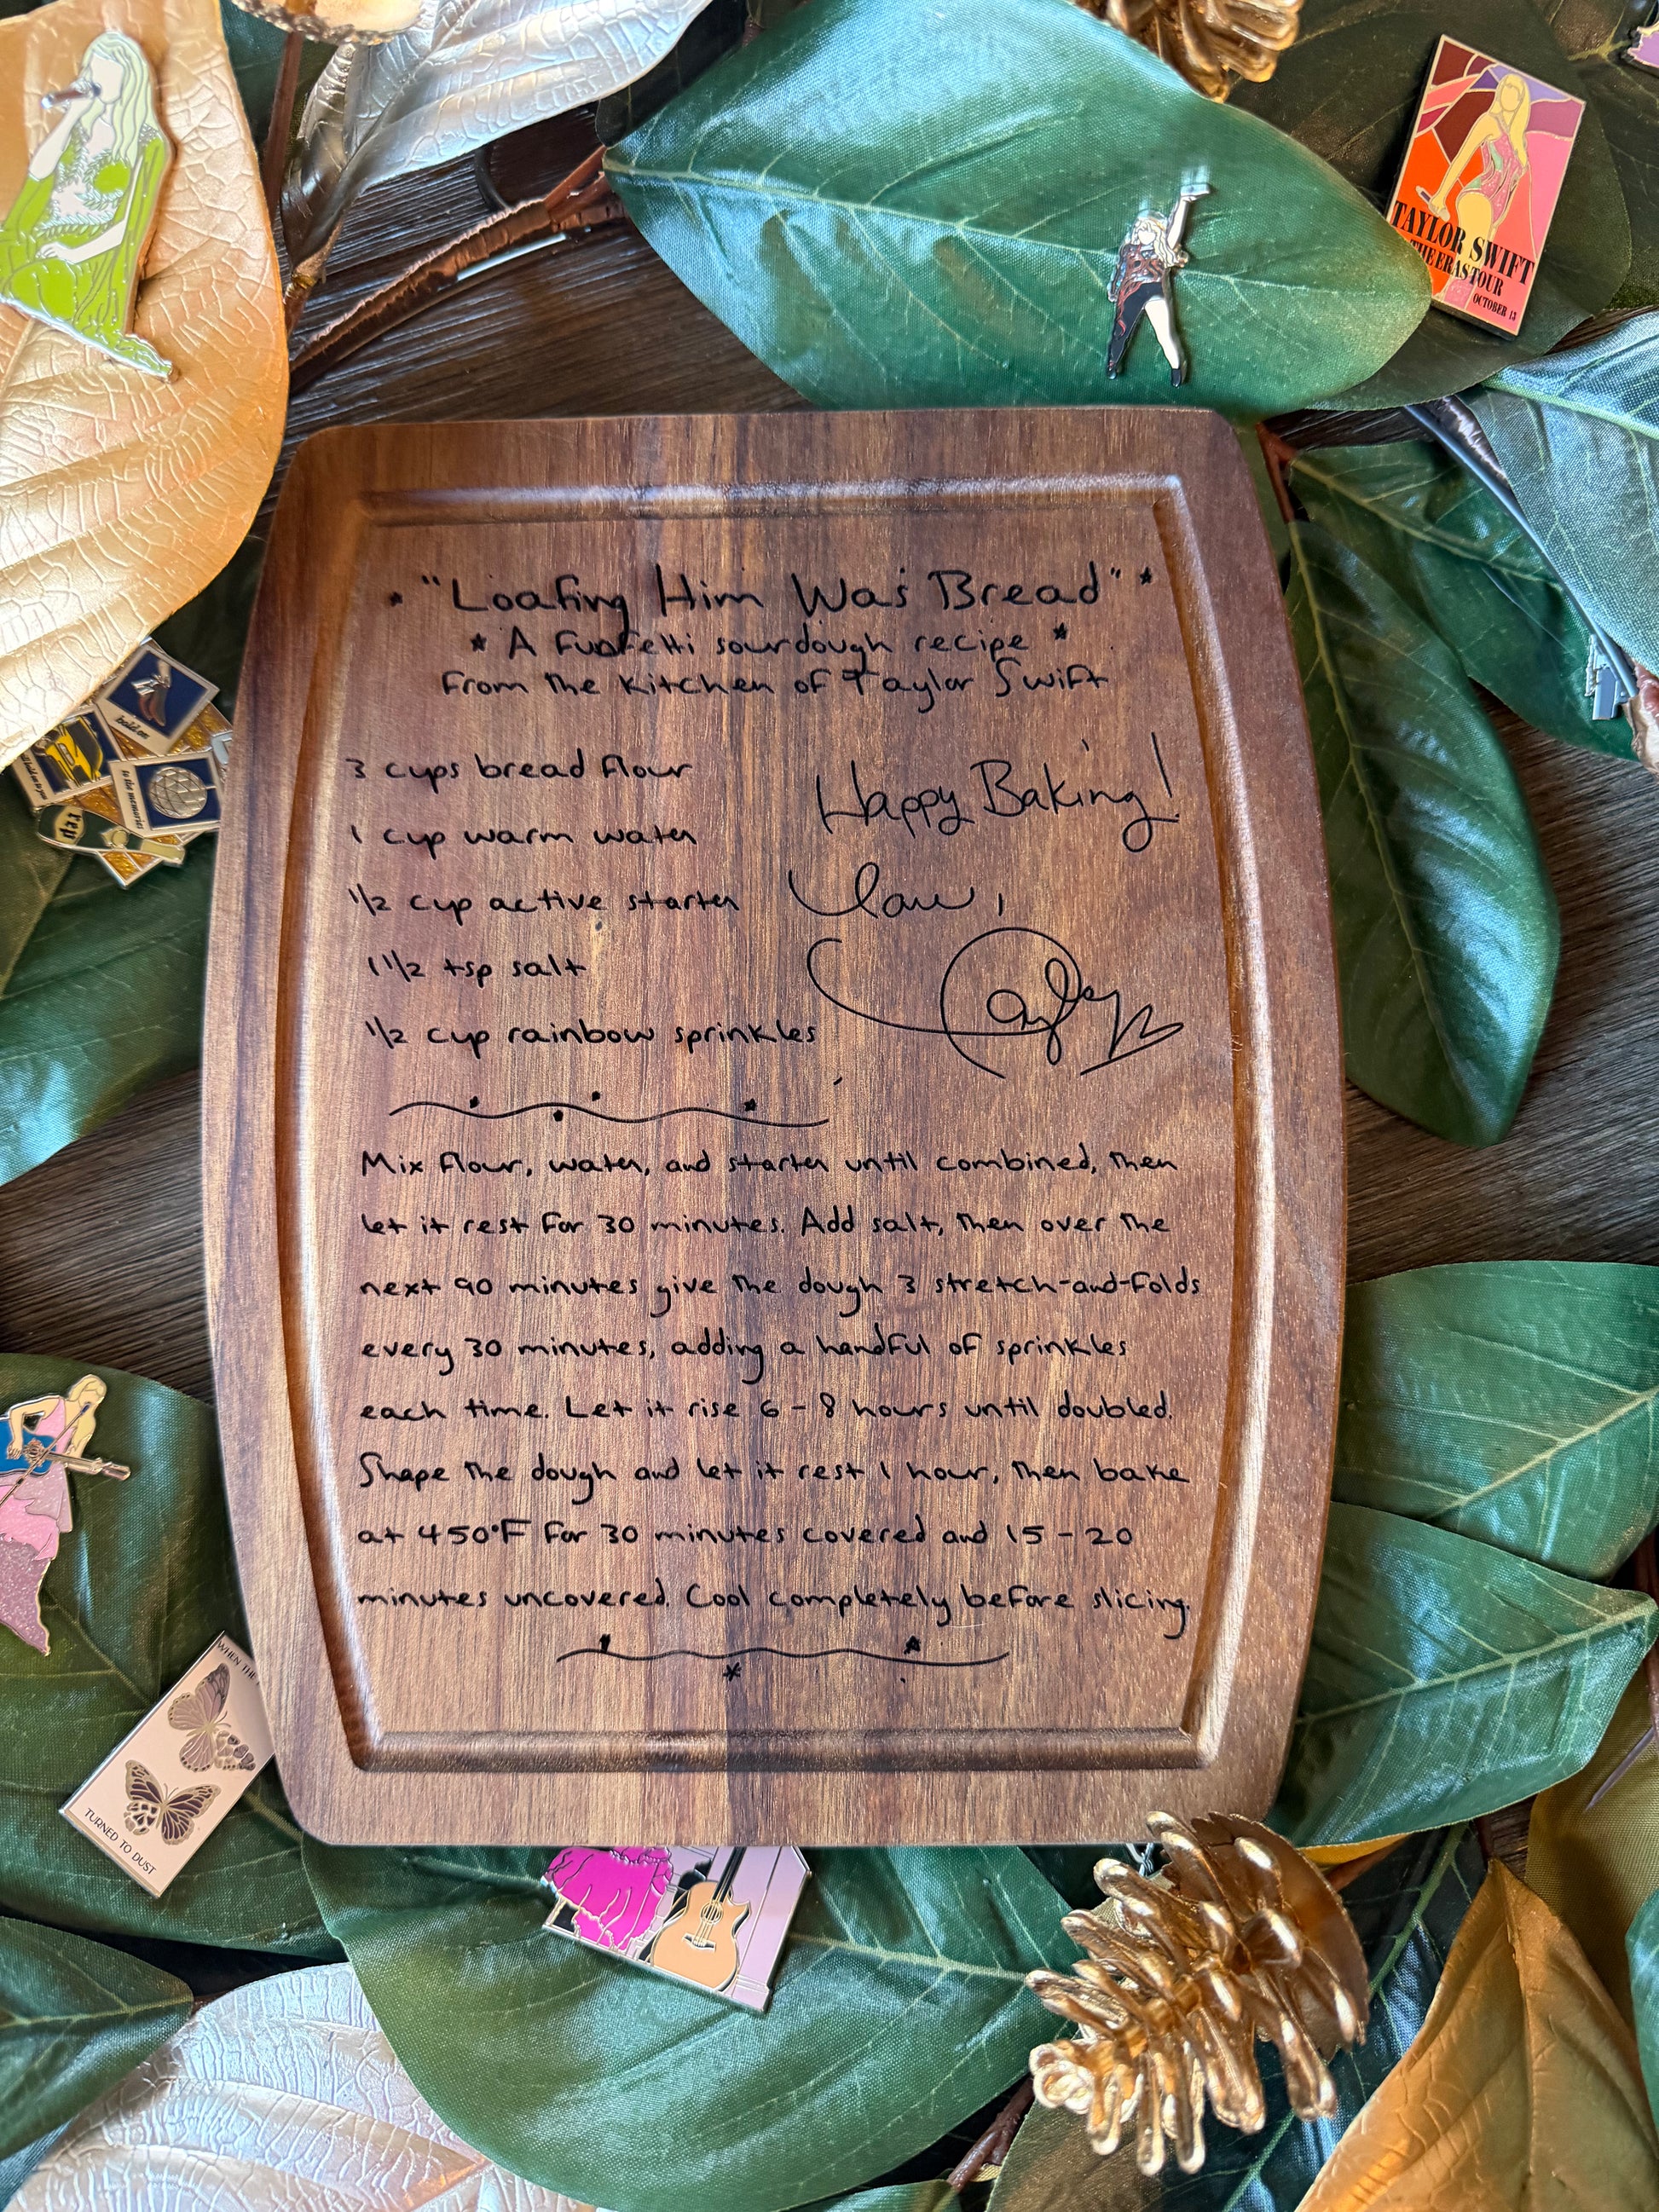 TAYLOR SWIFT
THE ERAS TOUR
OCTOBER 13
"Loafing Him Was Bread"
A Funfetti sourdough recipe
From the Kitchen of Taylor Swift
3 cups bread flour
1 cup warm water
1/2 cup active starter
1 1/2 tsp salt
1/2 cup rainbow sprinkles
Happy Baking!
Love,
Taylor
Mix flour, water, and starter until combined, then
let it rest for 30 minutes. Add salt, then over the
next 90 minutes give the dough 3 stretch-and-folds
every 30 minutes, adding a handful of sprinkles
each time. Let it rise 6 - 8 hours until doubled.
Shape the dough and let it rest 1 hour, then bake
at 450°F for 30 minutes covered and 15 - 20
minutes uncovered. Cool completely before slicing.
hold on
to the memories
rep
WHEN THE
TURNED TO DUST